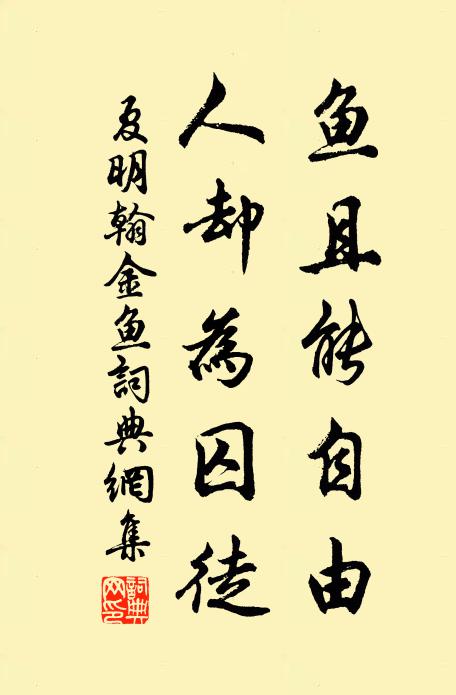 鱼且能自由
人却為囚徒
夏明翰金鱼詞典網集
詞典网印